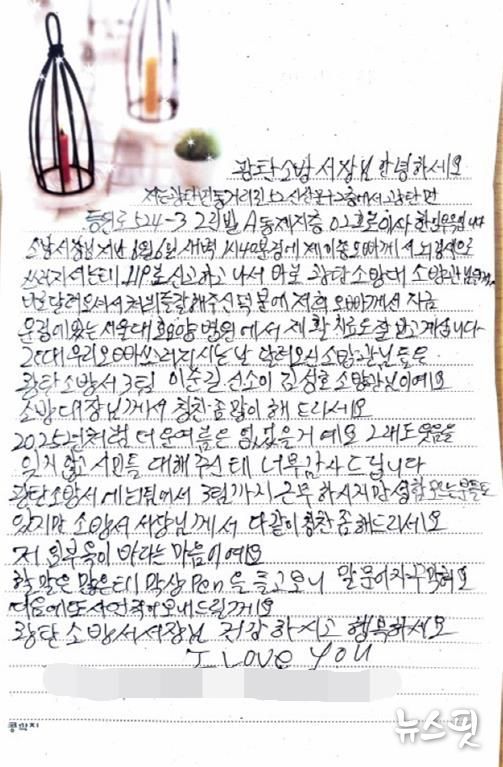 광탄소방서장님 안녕하세요
저는 광탄면
등원로 524-3 A동 02호로 이사
소방서장님 지난 6일 새벽 1시40분경에 제 오빠께서 뇌경색으로
쓰러지셨는데 119로 신고하고 나서 바로 광탄소방대 소방관님
달려오셔서 처치를 잘해주신 덕분에 저희 오빠께서 지금
운정에 있는 서울대효요양병원에서 재활치료도 잘 받고 계십니다
그런데 우리오빠 쓰러지시는 날 달려오신 소방관님들은
광탄소방서 3팀 이준길 선소이 김성호 소방관님이에요
소방대장님께서 칭찬 좀 많이 해 드리세요
2025년처럼 더운 여름은 없었을거예요 그래도 웃음을
잊지 않고 시민들 대해주신데 너무 감사드립니다
광탄소방서에 1팀에서 3팀까지 근무하시지만 성함 모르는 분들도
있지만 소방서 서장님께서 다같이 칭찬 좀 해드리세요
저 일부욱이 바라는 마음이에요
할 말은 많은데 막상 Pen을 들고보니 말문이
다음에 또 사연 적어 보내드릴게요
광탄소방서 서장님 건강하시고 행복하세요
I LOVE YOU
콩깍지
뉴스핏